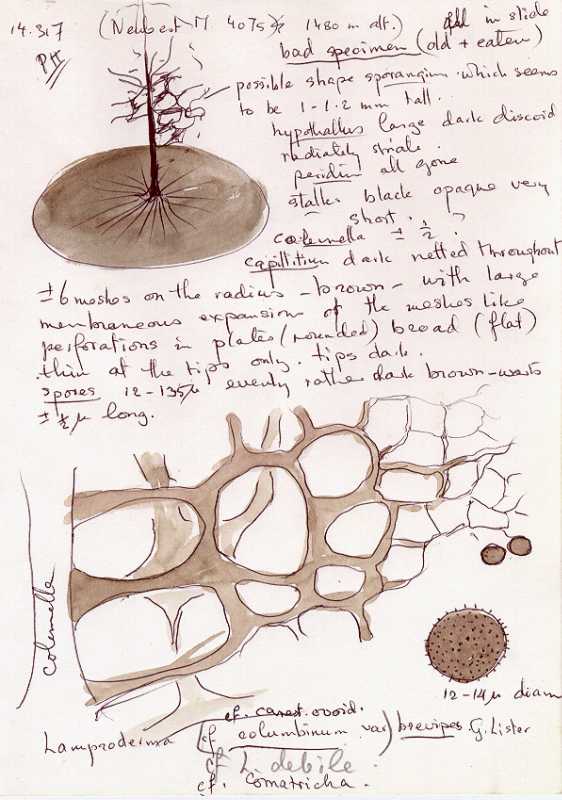 14.317 (Neubert M 4075 1480 m alt.) all in slide
PH
bad specimen (old + eaten)
possible shape sporangium which seems
to be 1-1.2 mm tall.
hypothallus large dark discoid
radiately striate.
peridium all gone
stalks black opaque very
short.
columella ± 1/2 ?
capillitium dark netted throughout
±6 meshes on the radius - brown - with large
membraneous expansion of the meshes like
perforations in plates (rounded) broad (flat)
thin at the tips only. tips dark.
spores 12-135μ evenly rather dark brown - warts
± 1/2 μ long.
columella
12-14μ diam
cf. ovoid.
Lamproderma (cf columbinum var) brevipes G. Lister
cf L. debile.
cf. Comatricha.